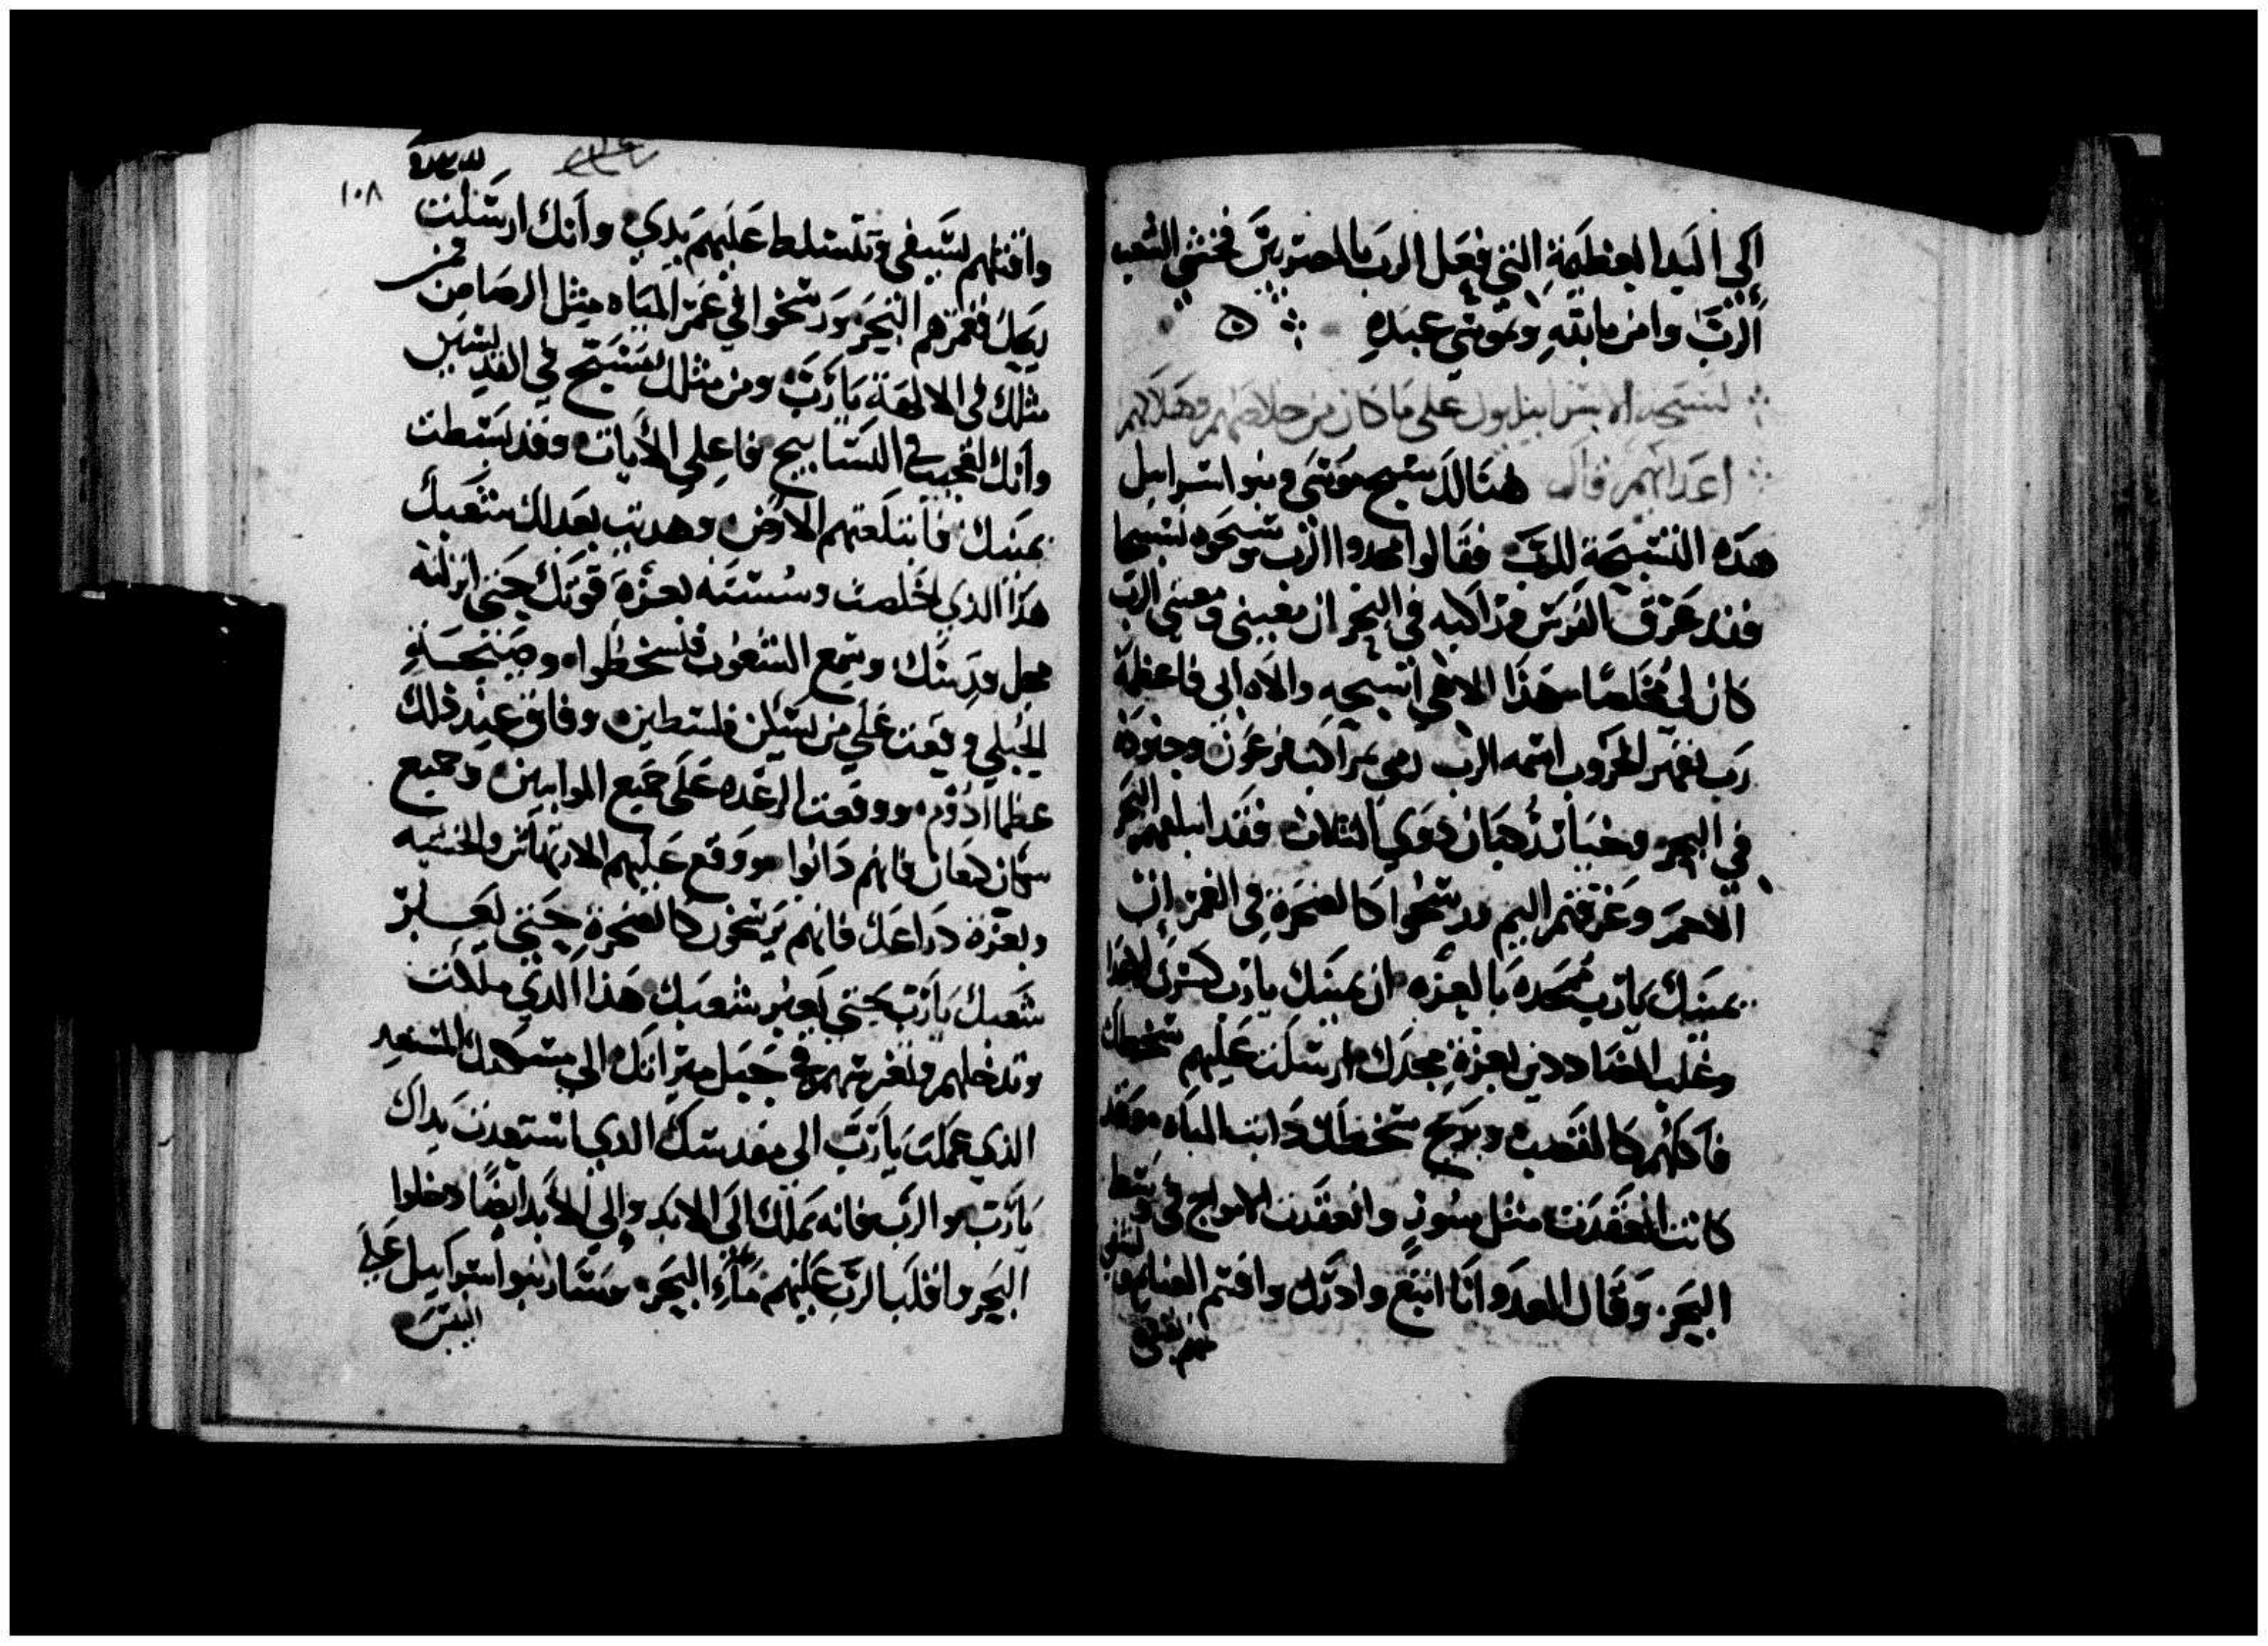 الى اليد العظيمة التي فعل الرب بالمصريين فخشي الشعب
الرب وامن بالله وبموسي عبده
على ما كان من خلاصهم وهلاك
اعدايهم قال هنالك سبح موسى وبنو اسراييل
هذه التسبحة للرب فقالوا مجدوا الرب وسبحوه تسبيحا
فقد غرق الفرس وراكبه في البحر ان معيني ومعيني الرب
كان لي مخلصا هذا الاهي اسبحه والاه ابي فاعظمه
رب يقهر الحروب اسمه الرب رمي مراكب فرعون وجنوده
في البحر ونخبا ركبان ذوي الثلاث فقد ابتلعهم البحر
الاحمر وغرقهم اليم ورسخوا كالصخرة في الغمر ان
يمينك يا رب ممجده بالعزه ان يمينك يا رب كسرت الاعدا
وغلب المضاددين بعزة مجدك ارسلت عليهم سخطك
فاكلهم كالقصب وبريح سخطك دابت المياه وقد
كانت انعقدت مثل سور وانعقدت الامواج في وسط
البحر وقال العدو انا اتبع وادرك واقسم الغنايم
منهم نفسي
١٠٨
واقتلهم بسيفي وتتسلط عليهم يدي وانك ارسلت
ريحك فغمرهم البحر ورسخوا في غمر المياه مثل الرصاص من
مثلك في الالهة يا رب ومن مثلك يسبح في القديسين
وانك لعجيب في التسابيح فاعل الايات وقد بسطت
يمينك فابتلعتهم الارض وهديت بعدلك شعبك
هذا الذي خلصت وسسته بعزة قوتك حتى انزلته
محل قدسك وسمع الشعوب فسخطوا
الجبلي وقعت على من يسكن فلسطين وفاق عند ذلك
عظما ادوم ووقعت الرعده على جميع الموابيين وجميع
سكان كنعان فانهم دابوا ووقع عليهم الارتهاش والخشيه
وبعزة دراعك فانهم يرسخون كالصخرة حتى يعبر
شعبك يا رب حتى يعبر شعبك هذا الذي ملكت
وتدخلهم وتغرسهم في جبل ميراثك الى مسكنك المستعد
الذي عملت يا رب الى مقدسك الذي استعدت يداك
يا رب والرب فانه يملك الى الابد والى الابد ايضا دخلوا
البحر واقلب الرب عليهم ماء البحر وسار بنو اسراييل على
اليبس